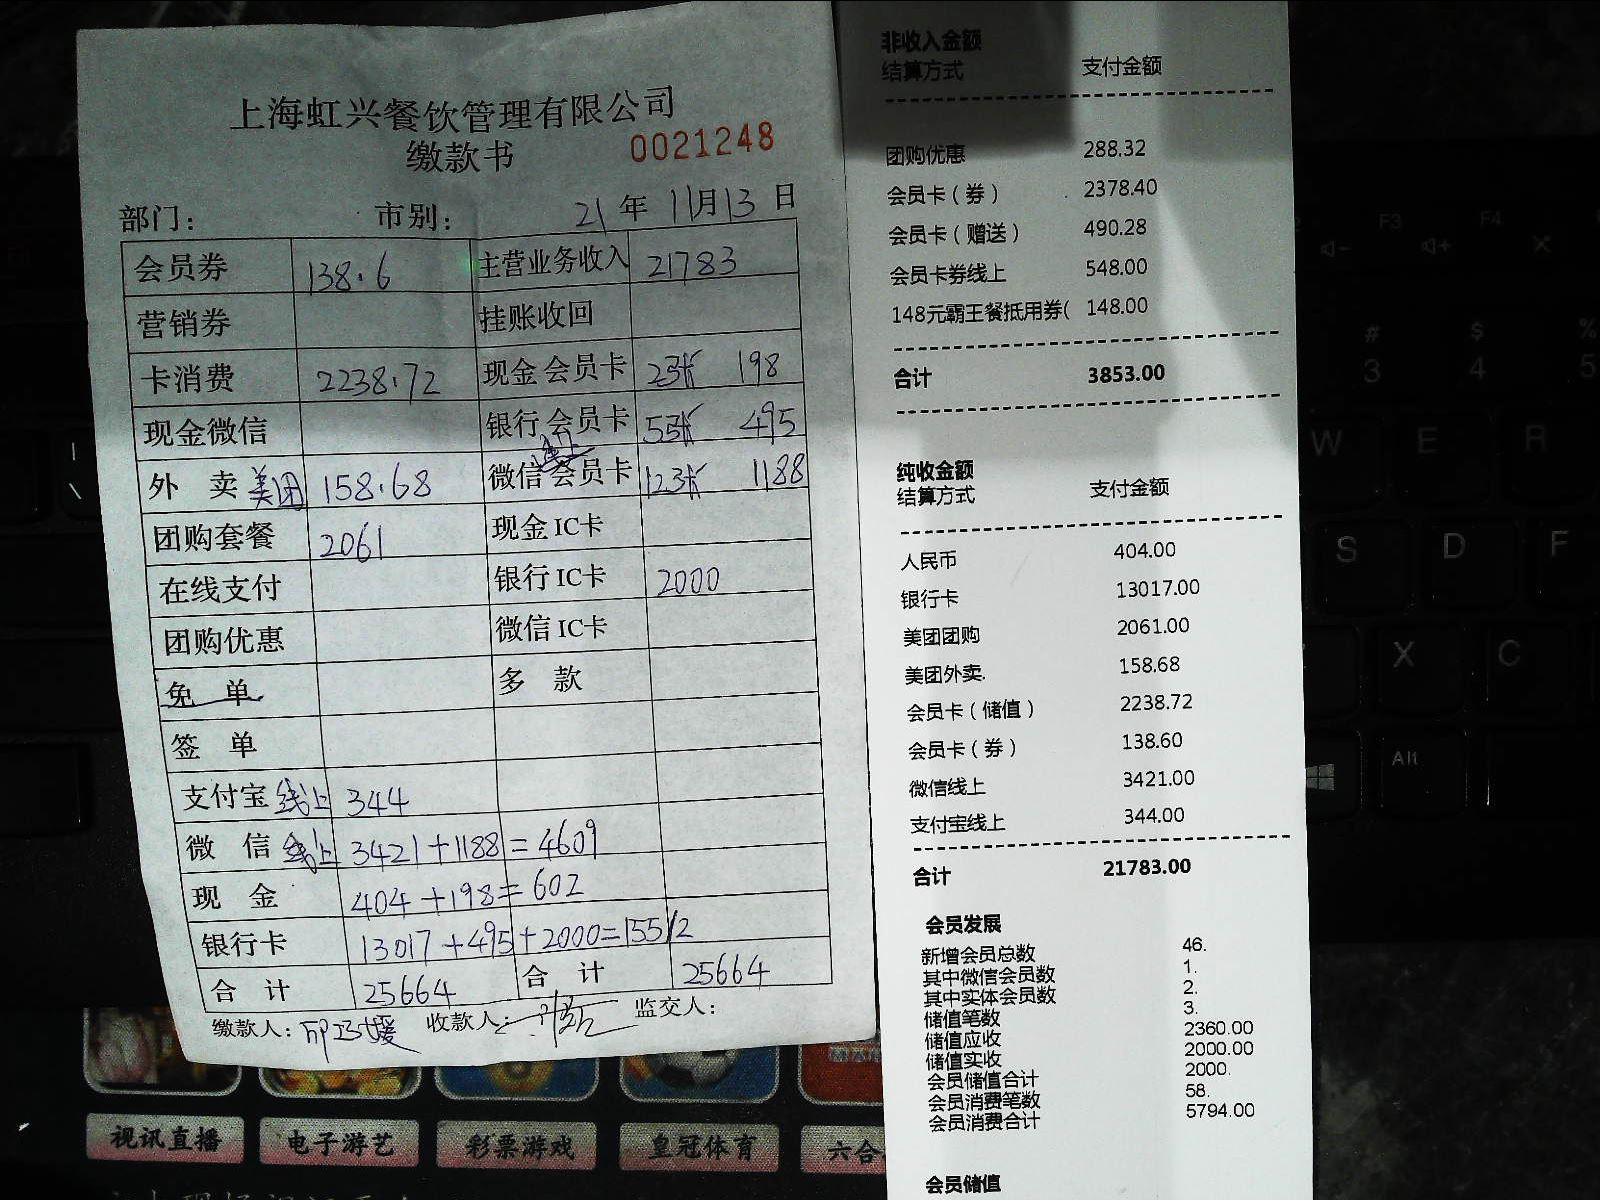 上海虹兴餐饮管理有限公司
缴款书 0021248
部门: 市别: 21 年 11月13 日
会员券 138.6 主营业务收入 21783
营销券 挂账收回
卡消费 2238.72 现金会员卡 2张 198
现金微信 银行会员卡 5张 495
外 卖 美团 158.68 微信会员卡 12张 1188
团购套餐 2061 现金IC卡
在线支付 银行IC卡 2000
团购优惠 微信IC卡
免 单 多 款
签 单
支付宝 线上 344
微 信 线上 3421+1188=4609
现 金 404+198=602
银行卡 13017+495+2000=15512
合 计 25664 合 计 25664
缴款人: 收款人: 监交人:
非收入金额
结算方式 支付金额
团购优惠 288.32
会员卡(券) 2378.40
会员卡(赠送) 490.28
会员卡券线上 548.00
148元霸王餐抵用券( 148.00
合计 3853.00
纯收金额
结算方式 支付金额
人民币 404.00
银行卡 13017.00
美团团购 2061.00
美团外卖. 158.68
会员卡(储值) 2238.72
会员卡(券) 138.60
微信线上 3421.00
支付宝线上 344.00
合计 21783.00
会员发展
新增会员总数 46.
其中微信会员数 1.
其中实体会员数 2.
储值笔数 3.
储值应收 2360.00
储值实收 2000.00
会员储值合计 2000.
会员消费笔数 58.
会员消费合计 5794.00
会员储值
视讯直播 电子游艺 彩票游戏 皇冠体育 六合
F3 F4
# $ %
3 4 5
W E R
S D F
X C
Alt